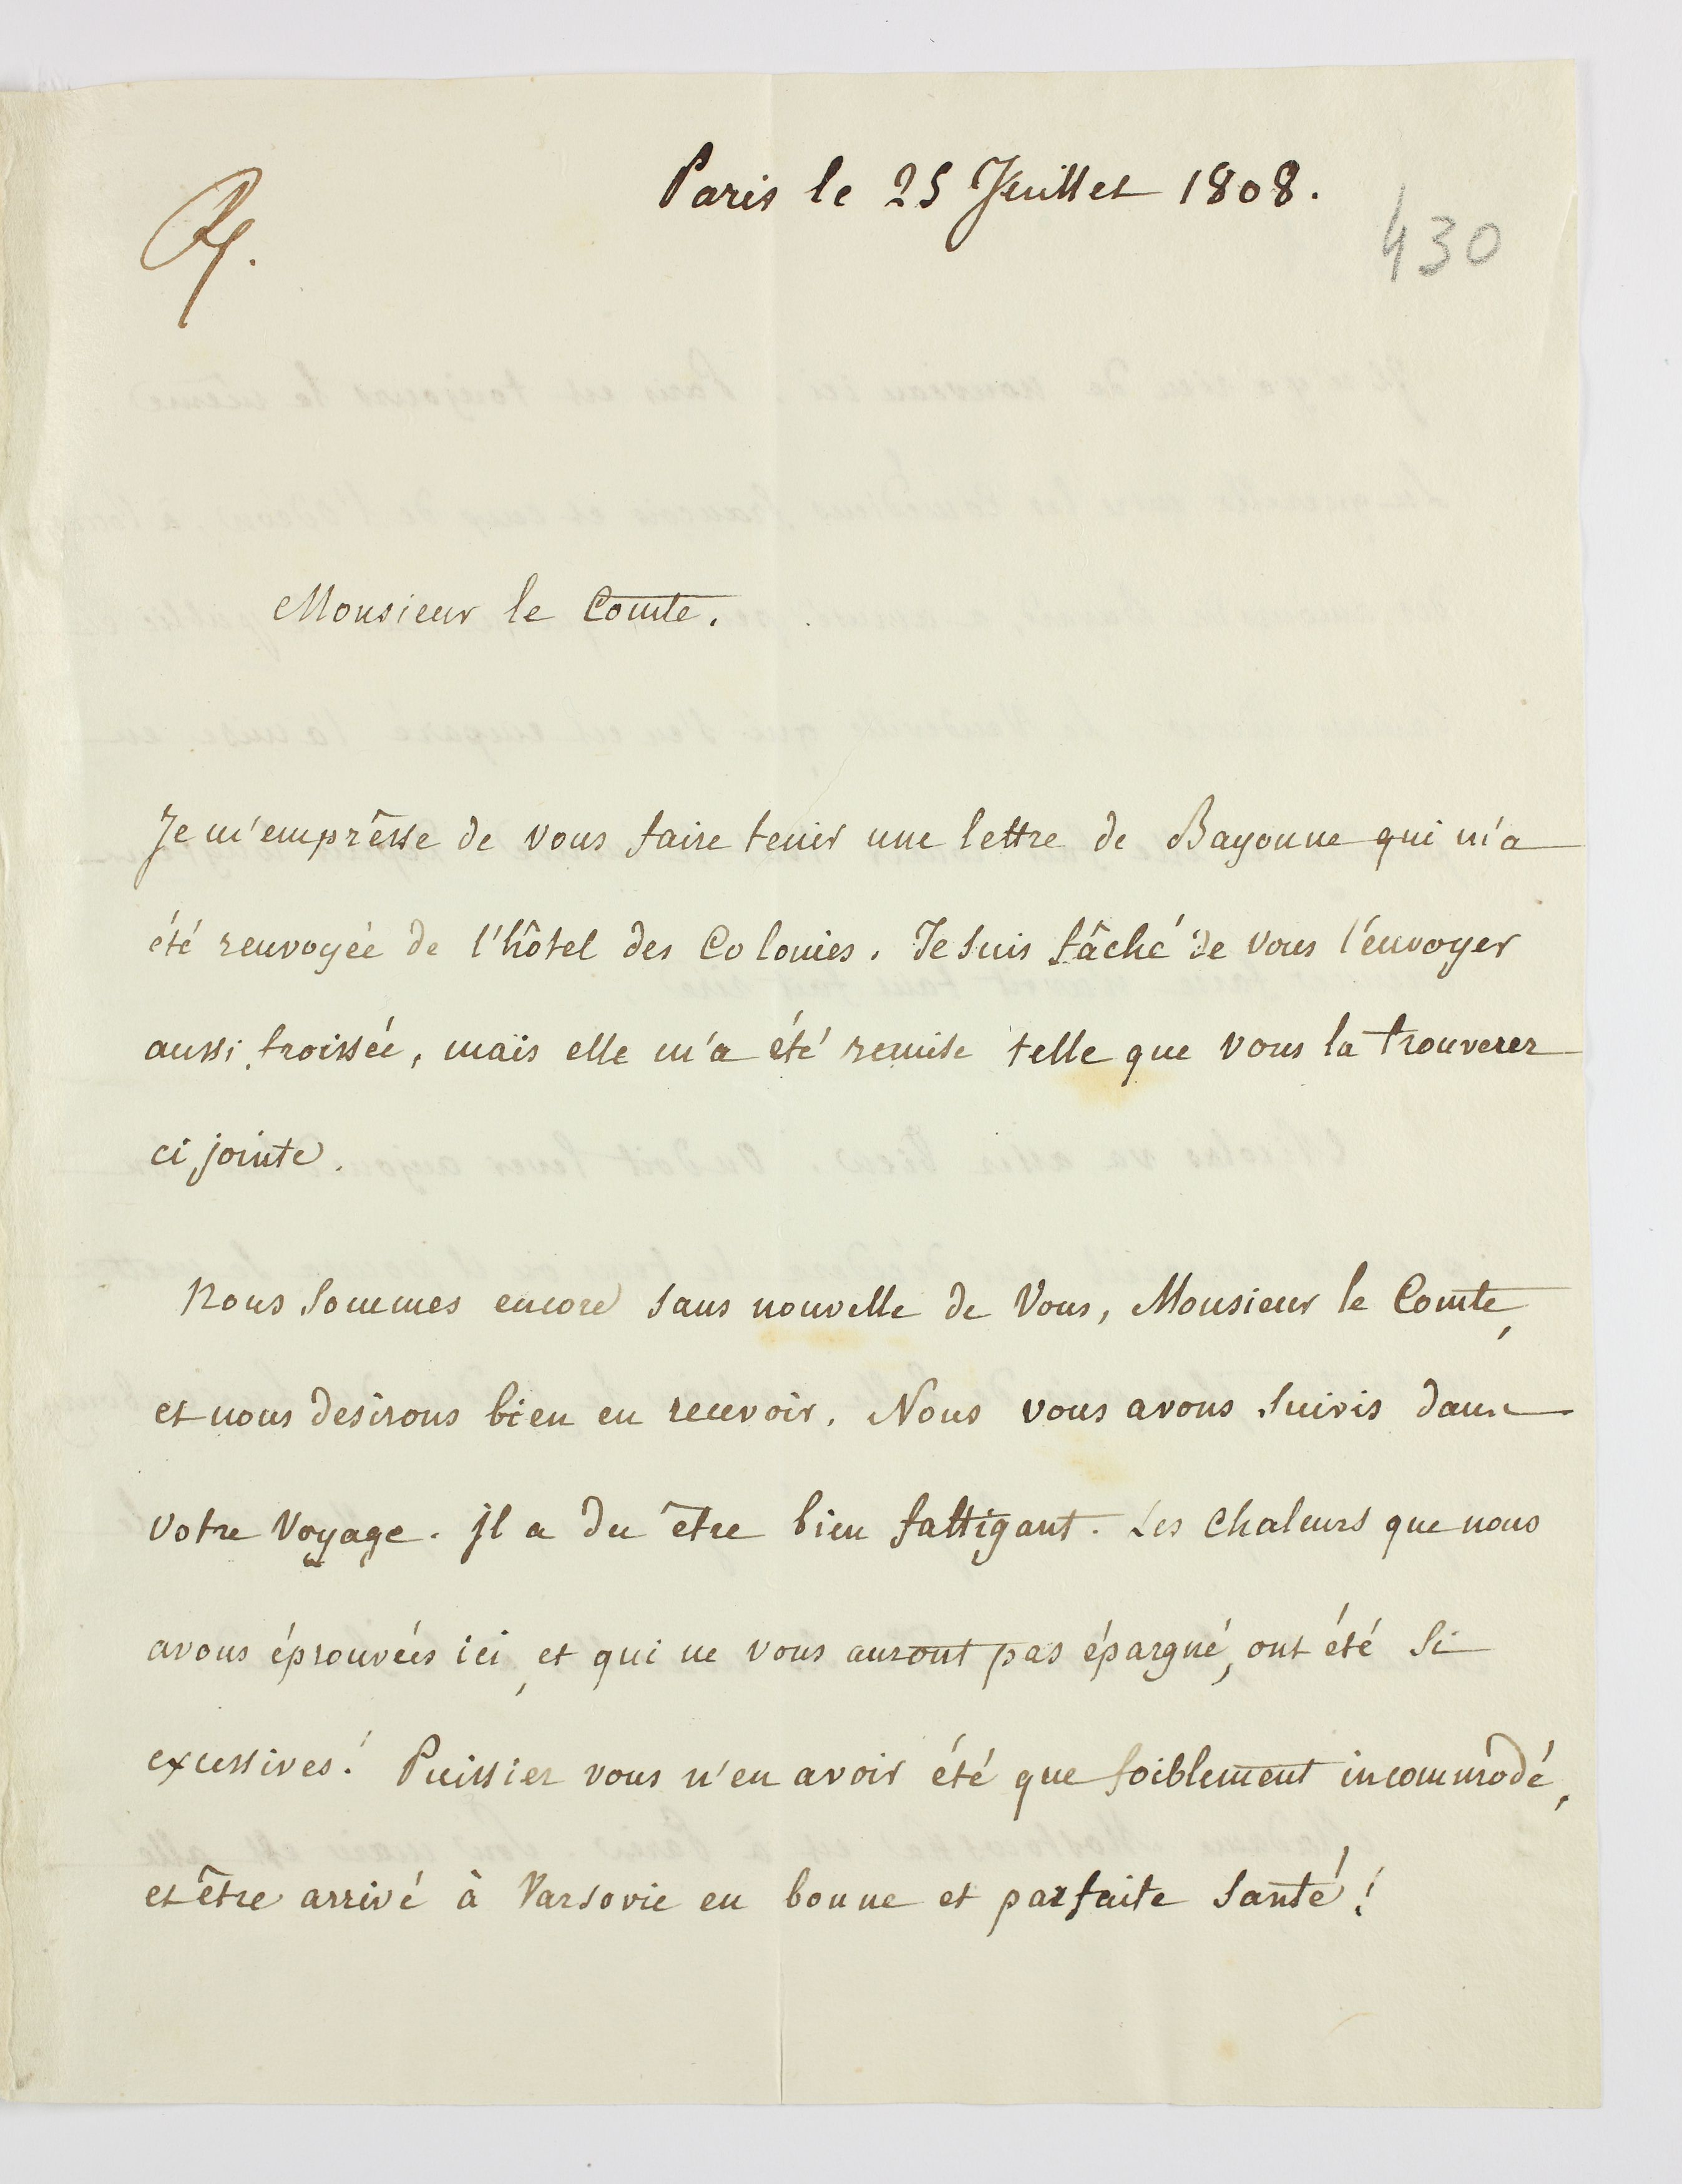 Paris le 25 Juillet 1808.
R.
430
Monsieur le Comte.
Je m'emprêsse de vous faire tenir une lettre de Bayonne qui m'a
été renvoyée de l'hôtel des Colonies. Je suis fâché de vous l'envoyer
aussi froissée, mais elle m'a été remise telle que vous la trouverez
ci jointe.
Nous sommes encore sans nouvelle de Vous, Monsieur le Comte,
et nous desirons bien en recevoir. Nous vous avons suivis dans
votre Voyage. Il a du être bien fattigant. Les Chaleurs que nous
avons éprouvées ici, et qui ne vous auront pas épargné, ont été si
excessives! Puissiez vous n'en avoir été que foiblement incommodé,
et être arrivé à Varsovie en bonne et parfaite santé!